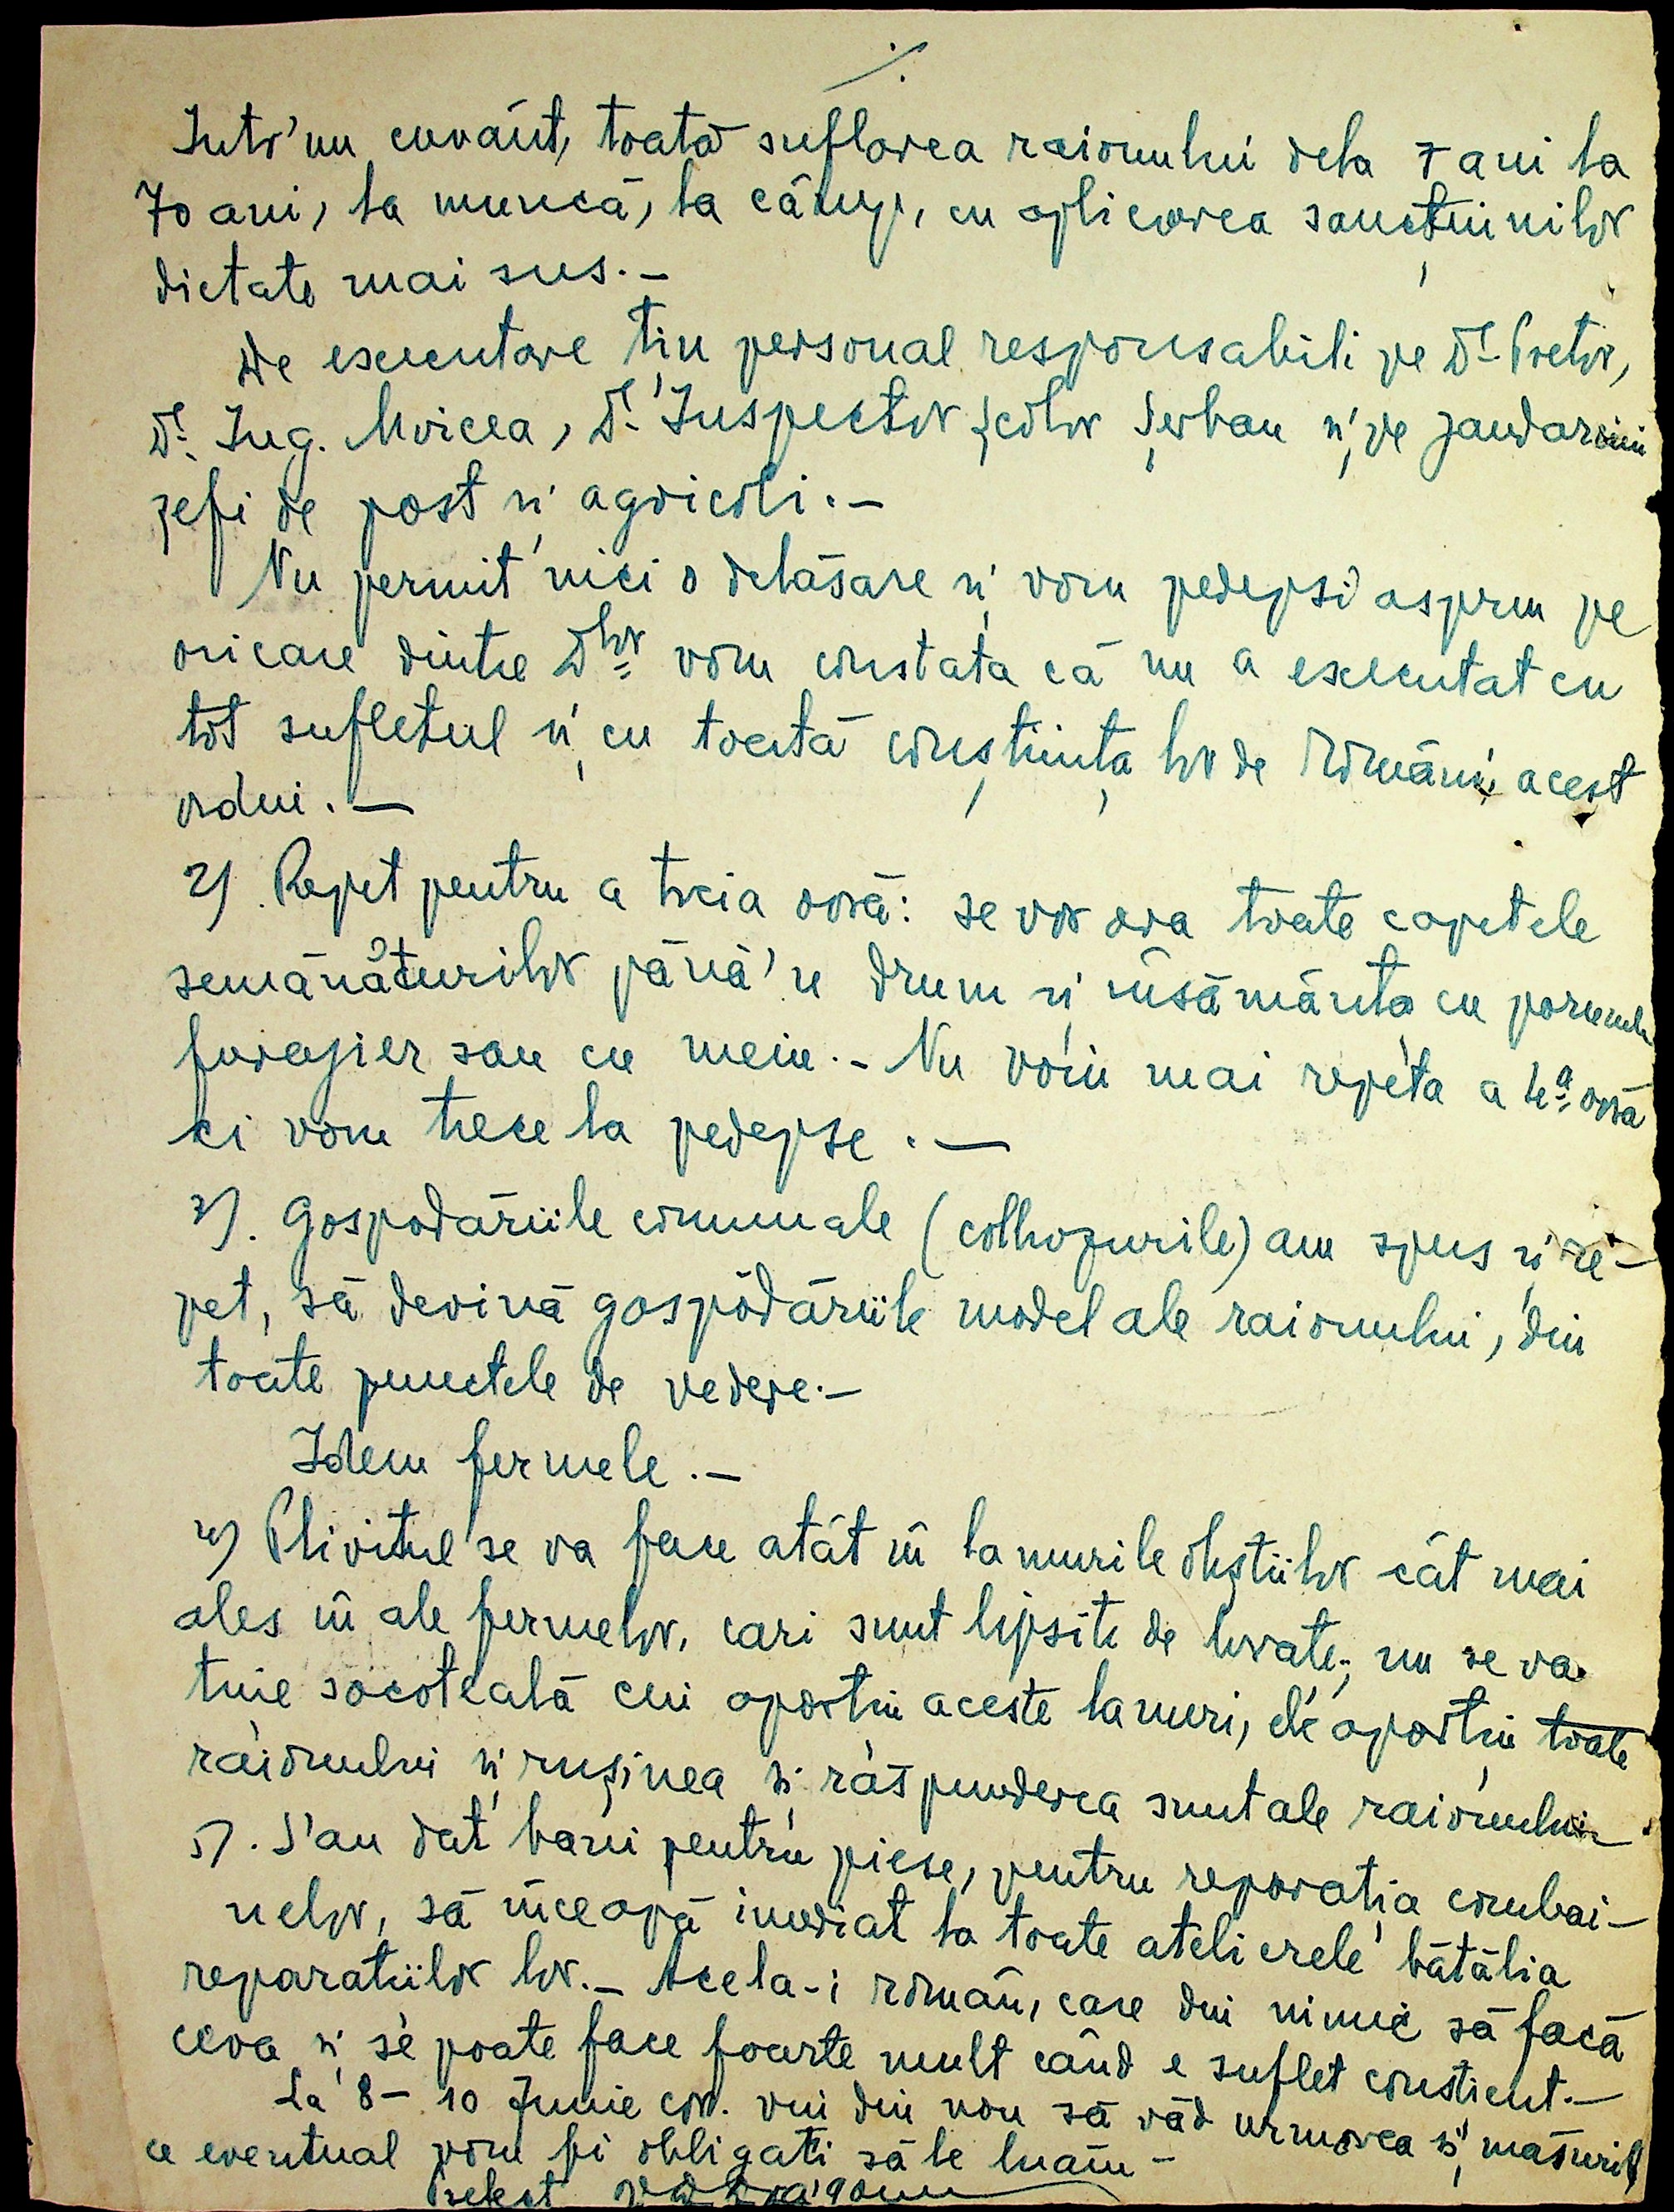 ./.
Intr'un cuvânt, toată suflarea raionului dela 7 ani la
70 ani, la muncă, la câmp, cu aplicarea sancțiunilor
dictate mai sus.-
De executare țin personal responsabili pe Dl. Pretor,
Dl. Ing. Mircea, Dl. Inspector școlar Șerban și pe jandarmii
șefi de post și agricoli.-
Nu permit nici o delăsare și vom pedepsi aspru pe
oricare dintre Dlor vom constata că nu a executat cu
tot sufletul și cu toată conștiința lor de Români, acest
ordin.-
2). Repet pentru a treia oară: se vor ara toate capetele
semănăturilor până'n drum și însămânța cu porumb
furajier sau cu meiu.- Nu voiu mai repeta a 4a oară
ci vom trece la pedepse.-
3). Gospodăriile comunale (colhozurile) am spus și re-
pet, să devină gospodăriile model ale raionului, din
toate punctele de vedere.-
Idem fermele.-
4) Plivitul se va face atât în lanurile obștiilor cât mai
ales în ale fermelor, cari sunt lipsite de brațe; nu se va
ține socoteală cui aparțin aceste lanuri, ele aparțin toate
raionului și rușinea și răspunderea sunt ale raionului.-
5). S'au dat bani pentru piese, pentru reparația combai-
nelor, să înceapă imediat la toate atelierele bătălia
reparațiilor lor.- Acela-i român, care din nimic să facă
ceva și se poate face foarte mult când e suflet conștient.-
La 8-10 Iunie cor. vin din nou să văd urmarea și măsurile
ce eventual vom fi obligați să le luăm-
Prefect